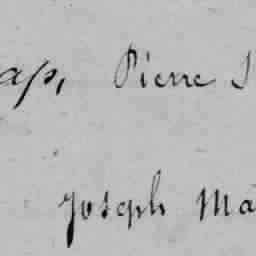 ap, Pierre J
Joseph Ma